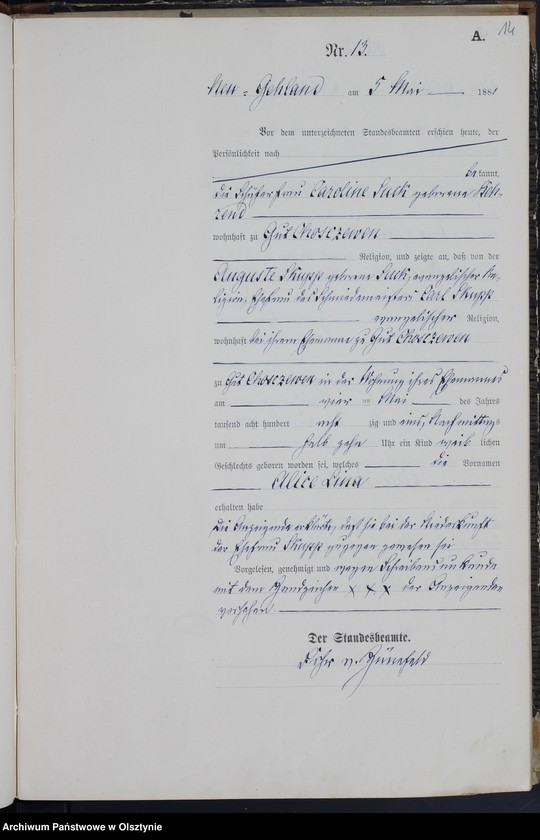 14
A.
Nr. 13.
Neu-Gehland am 5 Mai 1881
Vor dem unterzeichneten Standesbeamten erschien heute, der
Persönlichkeit nach
bekannt,
die Schäferfrau Caroline Suck geborene
wohnhaft zu Gut Choszewen
Religion, und zeigte an, daß von der
Auguste Skupp geborene Suck, evangelischer Re-
ligion, Ehefrau des Schmiedemeisters Carl Skupp
evangelischer Religion,
wohnhaft bei ihrem Ehemanne zu Gut Choszewen
zu Gut Choszewen in der Wohnung ihres Ehemannes
am vier ten Mai des Jahres
tausend acht hundert acht zig und eins, Nachmittags
um halb zehn Uhr ein Kind weib lichen
Geschlechts geboren worden sei, welches die Vornamen
Alice Lina
erhalten habe
Die Anzeigende erklärte, daß sie bei der Niederkunft
der Ehefrau Skupp zugegen gewesen sei
Vorgelesen, genehmigt und wegen Schreibensunkunde
mit dem Handzeichen x x x der Anzeigenden
versehen.
Der Standesbeamte.
Fhr v. Hünefeld
Archiwum Państwowe w Olsztynie